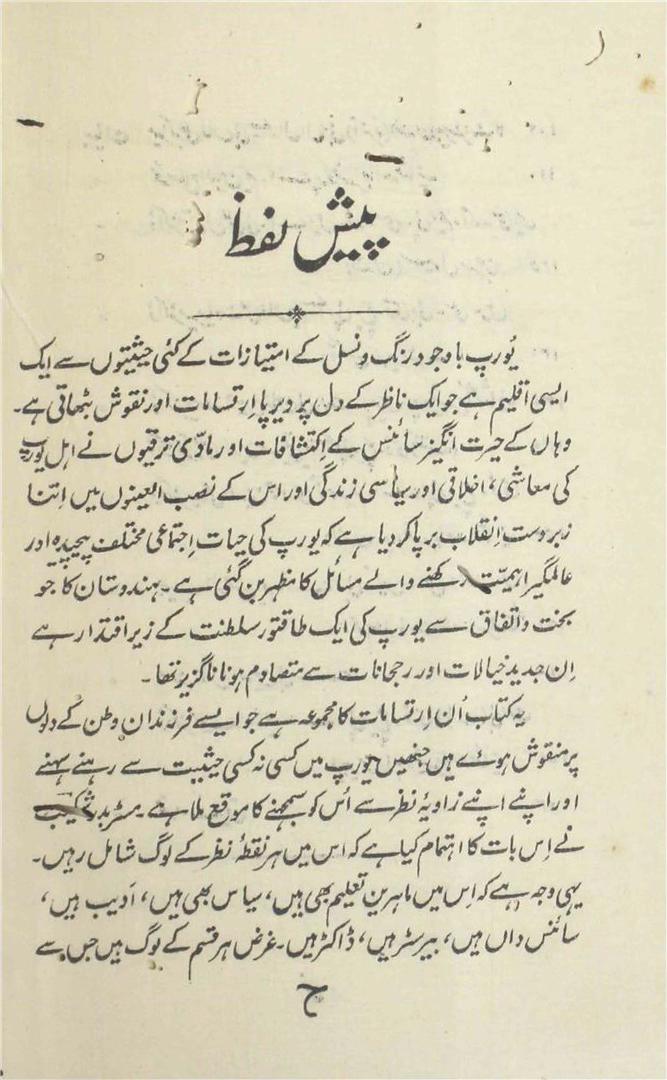 پیش لفظ
یُورپ باوجود رنگ و نسل کے امتیازات کے کئی حیثیتوں سے ایک
ایسی اقلیم ہے جو ایک ناظر کے دل پر دیرپا اِرتسامات اور نقوش بٹھاتی ہے۔
وہاں کے حیرت انگیز سائنس کے اِکتشافات اور مادّی ترقیوں نے اہل یورپ
کی معاشی، اخلاقی اور سیاسی زندگی اور اس کے نصب العینوں میں اِتنا
زبردست اِنقلاب برپا کر دیا ہے کہ یورپ کی حیات اِجتماعی مختلف پیچیدہ اور
عالمگیر اہمیّت رکھنے والے مسائل کا مظہر بن گئی ہے۔ ہندوستان کا جو
بخت و اتفاق سے یورپ کی ایک طاقتور سلطنت کے زیر اقتدار ہے
اِن جدید خیالات اور رجحانات سے متصادم ہونا ناگزیر تھا۔
یہ کتاب اُن اِرتسامات کا مجموعہ ہے جو ایسے فرزندان وطن کے دلوں
پر منقوش ہوئے ہیں جنھیں یورپ میں کسی نہ کسی حیثیت سے رہنے سہنے
اور اپنے اپنے زاویۂ نظر سے اُس کو سمجھنے کا موقع ملا ہے۔ مسٹر بدر شکیب
نے اِس بات کا اہتمام کیا ہے کہ اس میں ہر نقطۂ نظر کے لوگ شامل رہیں۔
یہی وجہ ہے کہ اِس میں ماہرین تعلیم بھی ہیں، سیاس بھی ہیں، اَدیب ہیں،
سائنس داں ہیں، بیرسٹر ہیں، ڈاکٹر ہیں۔ غرض ہر قسم کے لوگ ہیں جس سے
ح